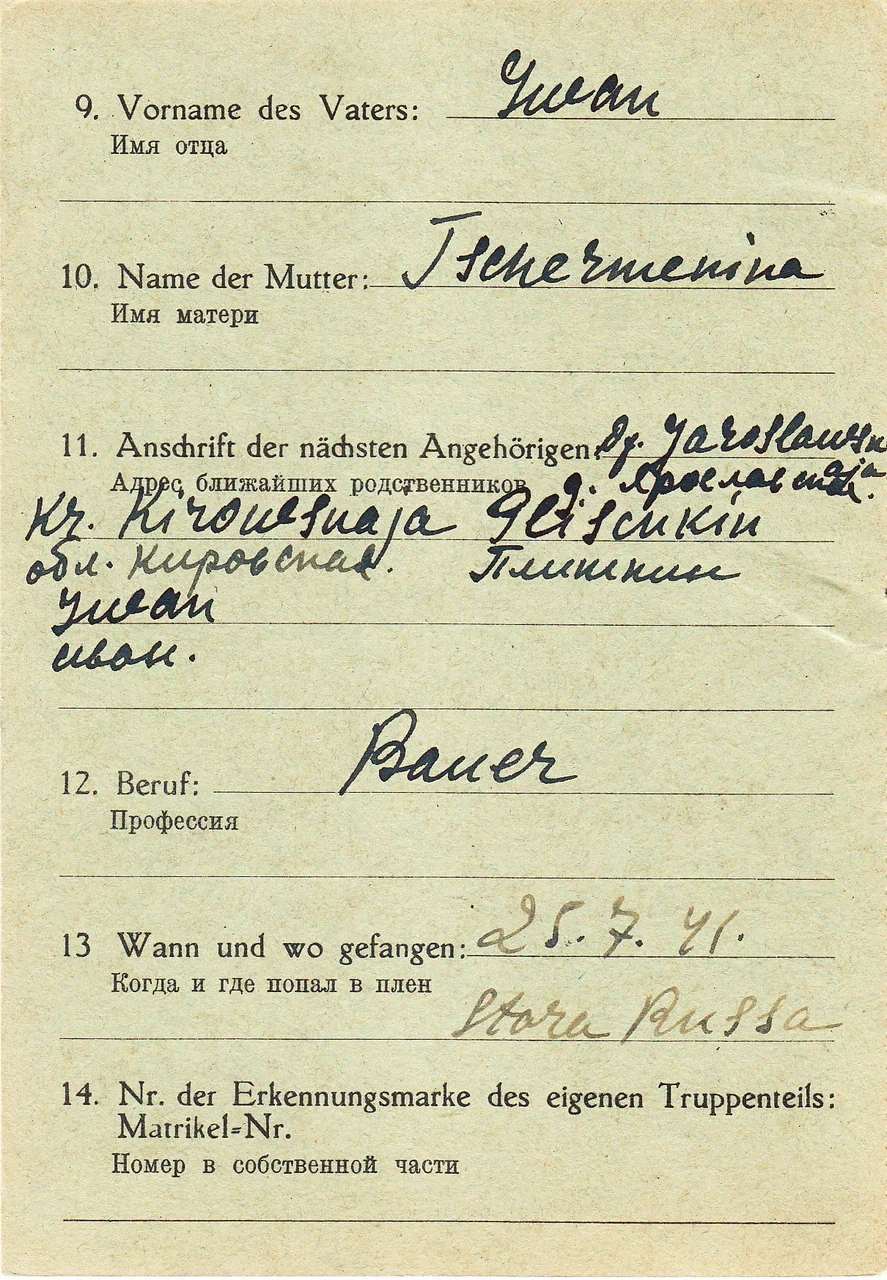 9. Vorname des Vaters: Iwan
Имя отца
10. Name der Mutter: Tschermenina
Имя матери
11. Anschrift der nächsten Angehörigen: Df. Jaroslawskaja
Адрес ближайших родственников д. Ярославская.
Kr. Kirowskaja Plischkin
обл. Кировская. Плишкин
Iwan
иван.
12. Beruf: Bauer
Профессия
13 Wann und wo gefangen: 25. 7. 41.
Когда и где попал в плен
Stara Russa
14. Nr. der Erkennungsmarke des eigenen Truppenteils:
Matrikel=Nr.
Номер в собственной части